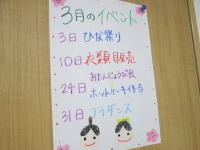 3月のイベント
3日 ひな祭り
10日 衣類販売
おたんじょう会
24日 ホットケーキ作り
31日 フラダンス